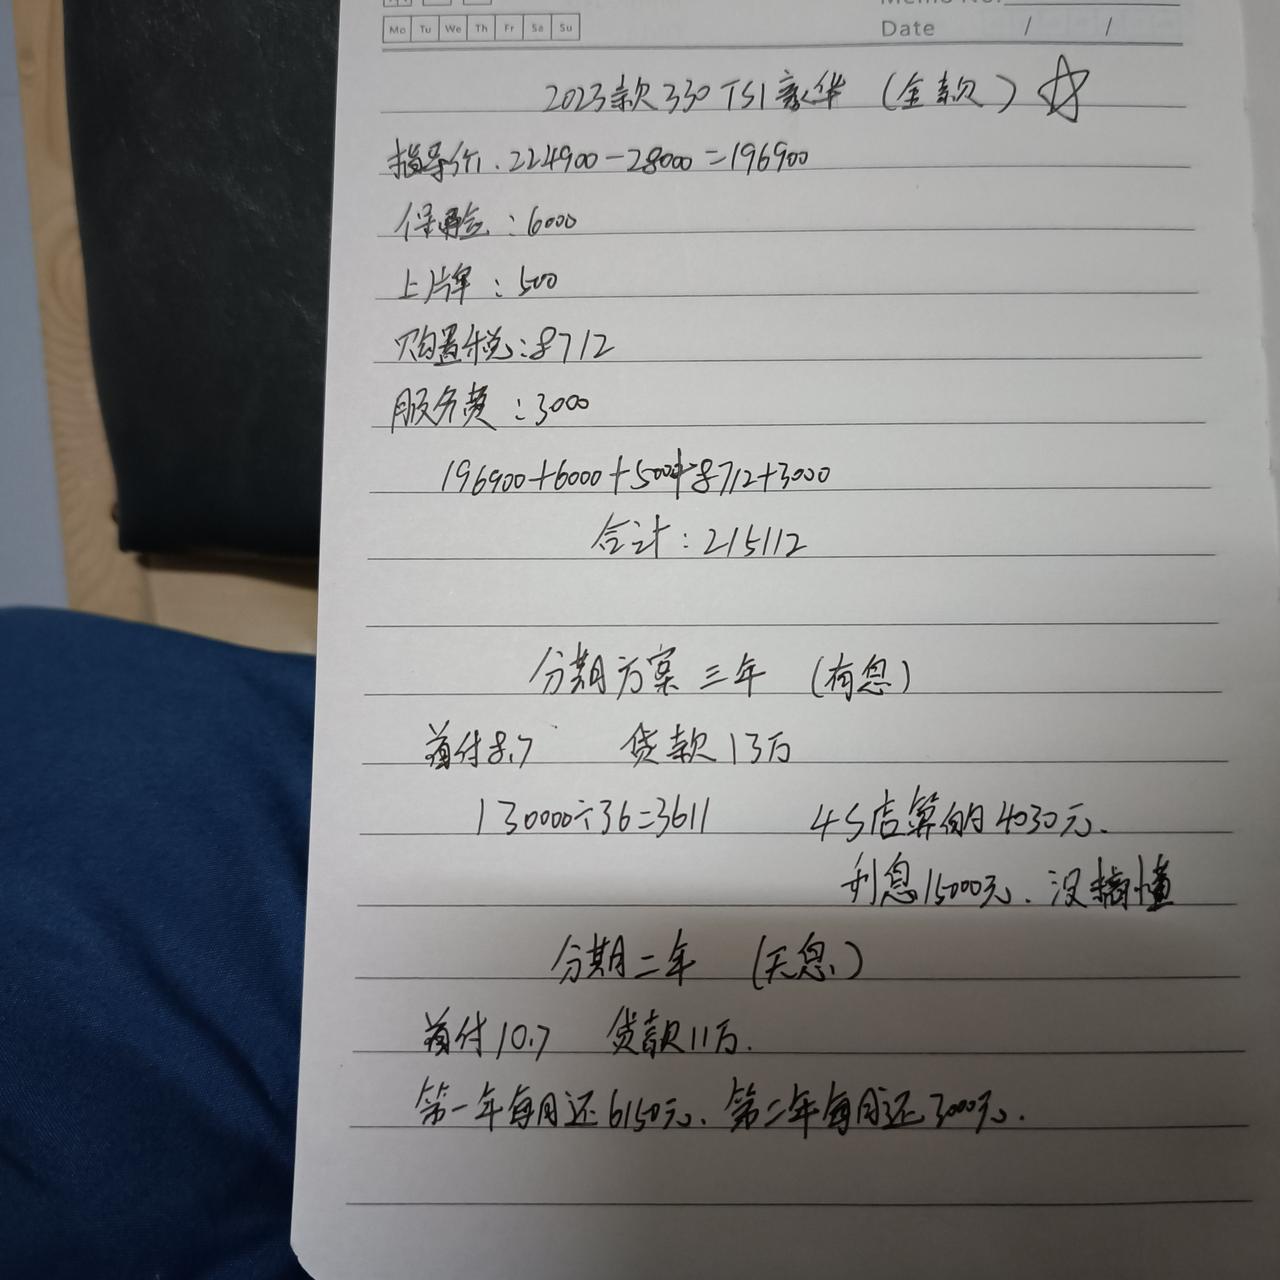 Memo No.
Mo Tu We Th Fr Sa Su
Date / /
2023款330TSI豪华（全款）☆
指导价.224900-28000=196900
保险:6000
上牌:500
购置税:8712
服务费:3000
196900+6000+500+8712+3000
合计:215112
分期方案三年（有息）
首付8.7 贷款13万
130000÷36=3611 4S店算的4030元.
利息15000元.没搞懂
分期二年（无息）
首付10.7 贷款11万.
第一年每月还6150元、第二年每月还3000元.